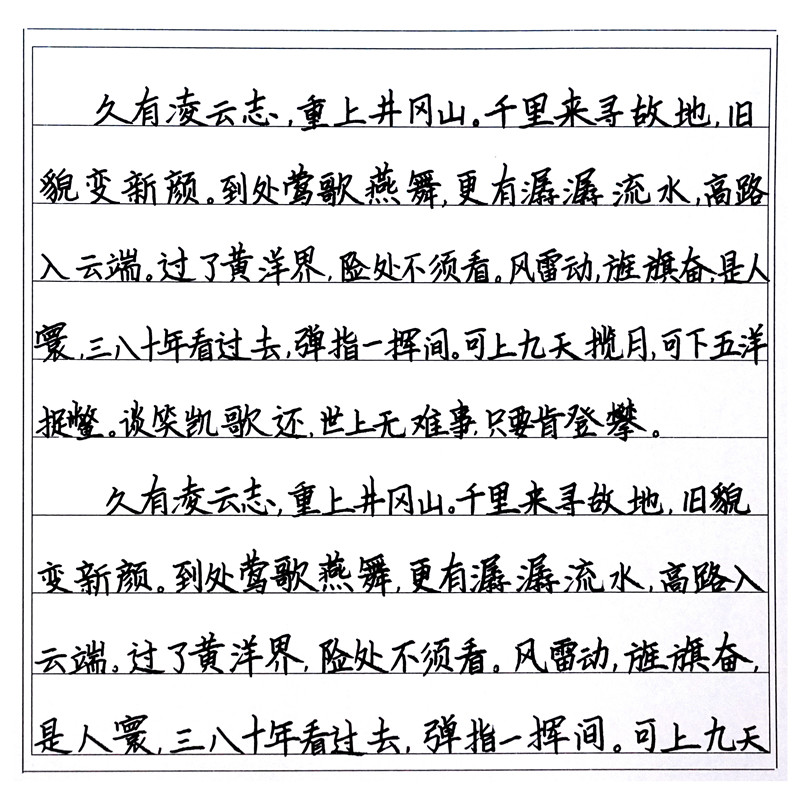 久有凌云志，重上井冈山。千里来寻故地，旧
貌变新颜。到处莺歌燕舞，更有潺潺流水，高路
入云端。过了黄洋界，险处不须看。风雷动，旌旗奋，是人
寰，三八十年看过去，弹指一挥间。可上九天揽月，可下五洋
捉鳖。谈笑凯歌还，世上无难事，只要肯登攀。
久有凌云志，重上井冈山。千里来寻故地，旧貌
变新颜。到处莺歌燕舞，更有潺潺流水，高路入
云端。过了黄洋界，险处不须看。风雷动，旌旗奋，
是人寰，三八十年看过去，弹指一挥间。可上九天